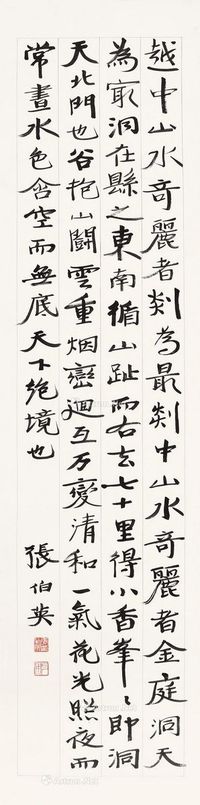 越中山水奇麗者剡為最剡中山水奇麗者金庭洞天
為冣洞在縣之東南循山趾而右去七十里得小香峯〻即洞
天北門也谷抱山闘雲重烟巒迴互万變清和一氣花光照夜而
常晝水色含空而無底天下絶境也
張伯英